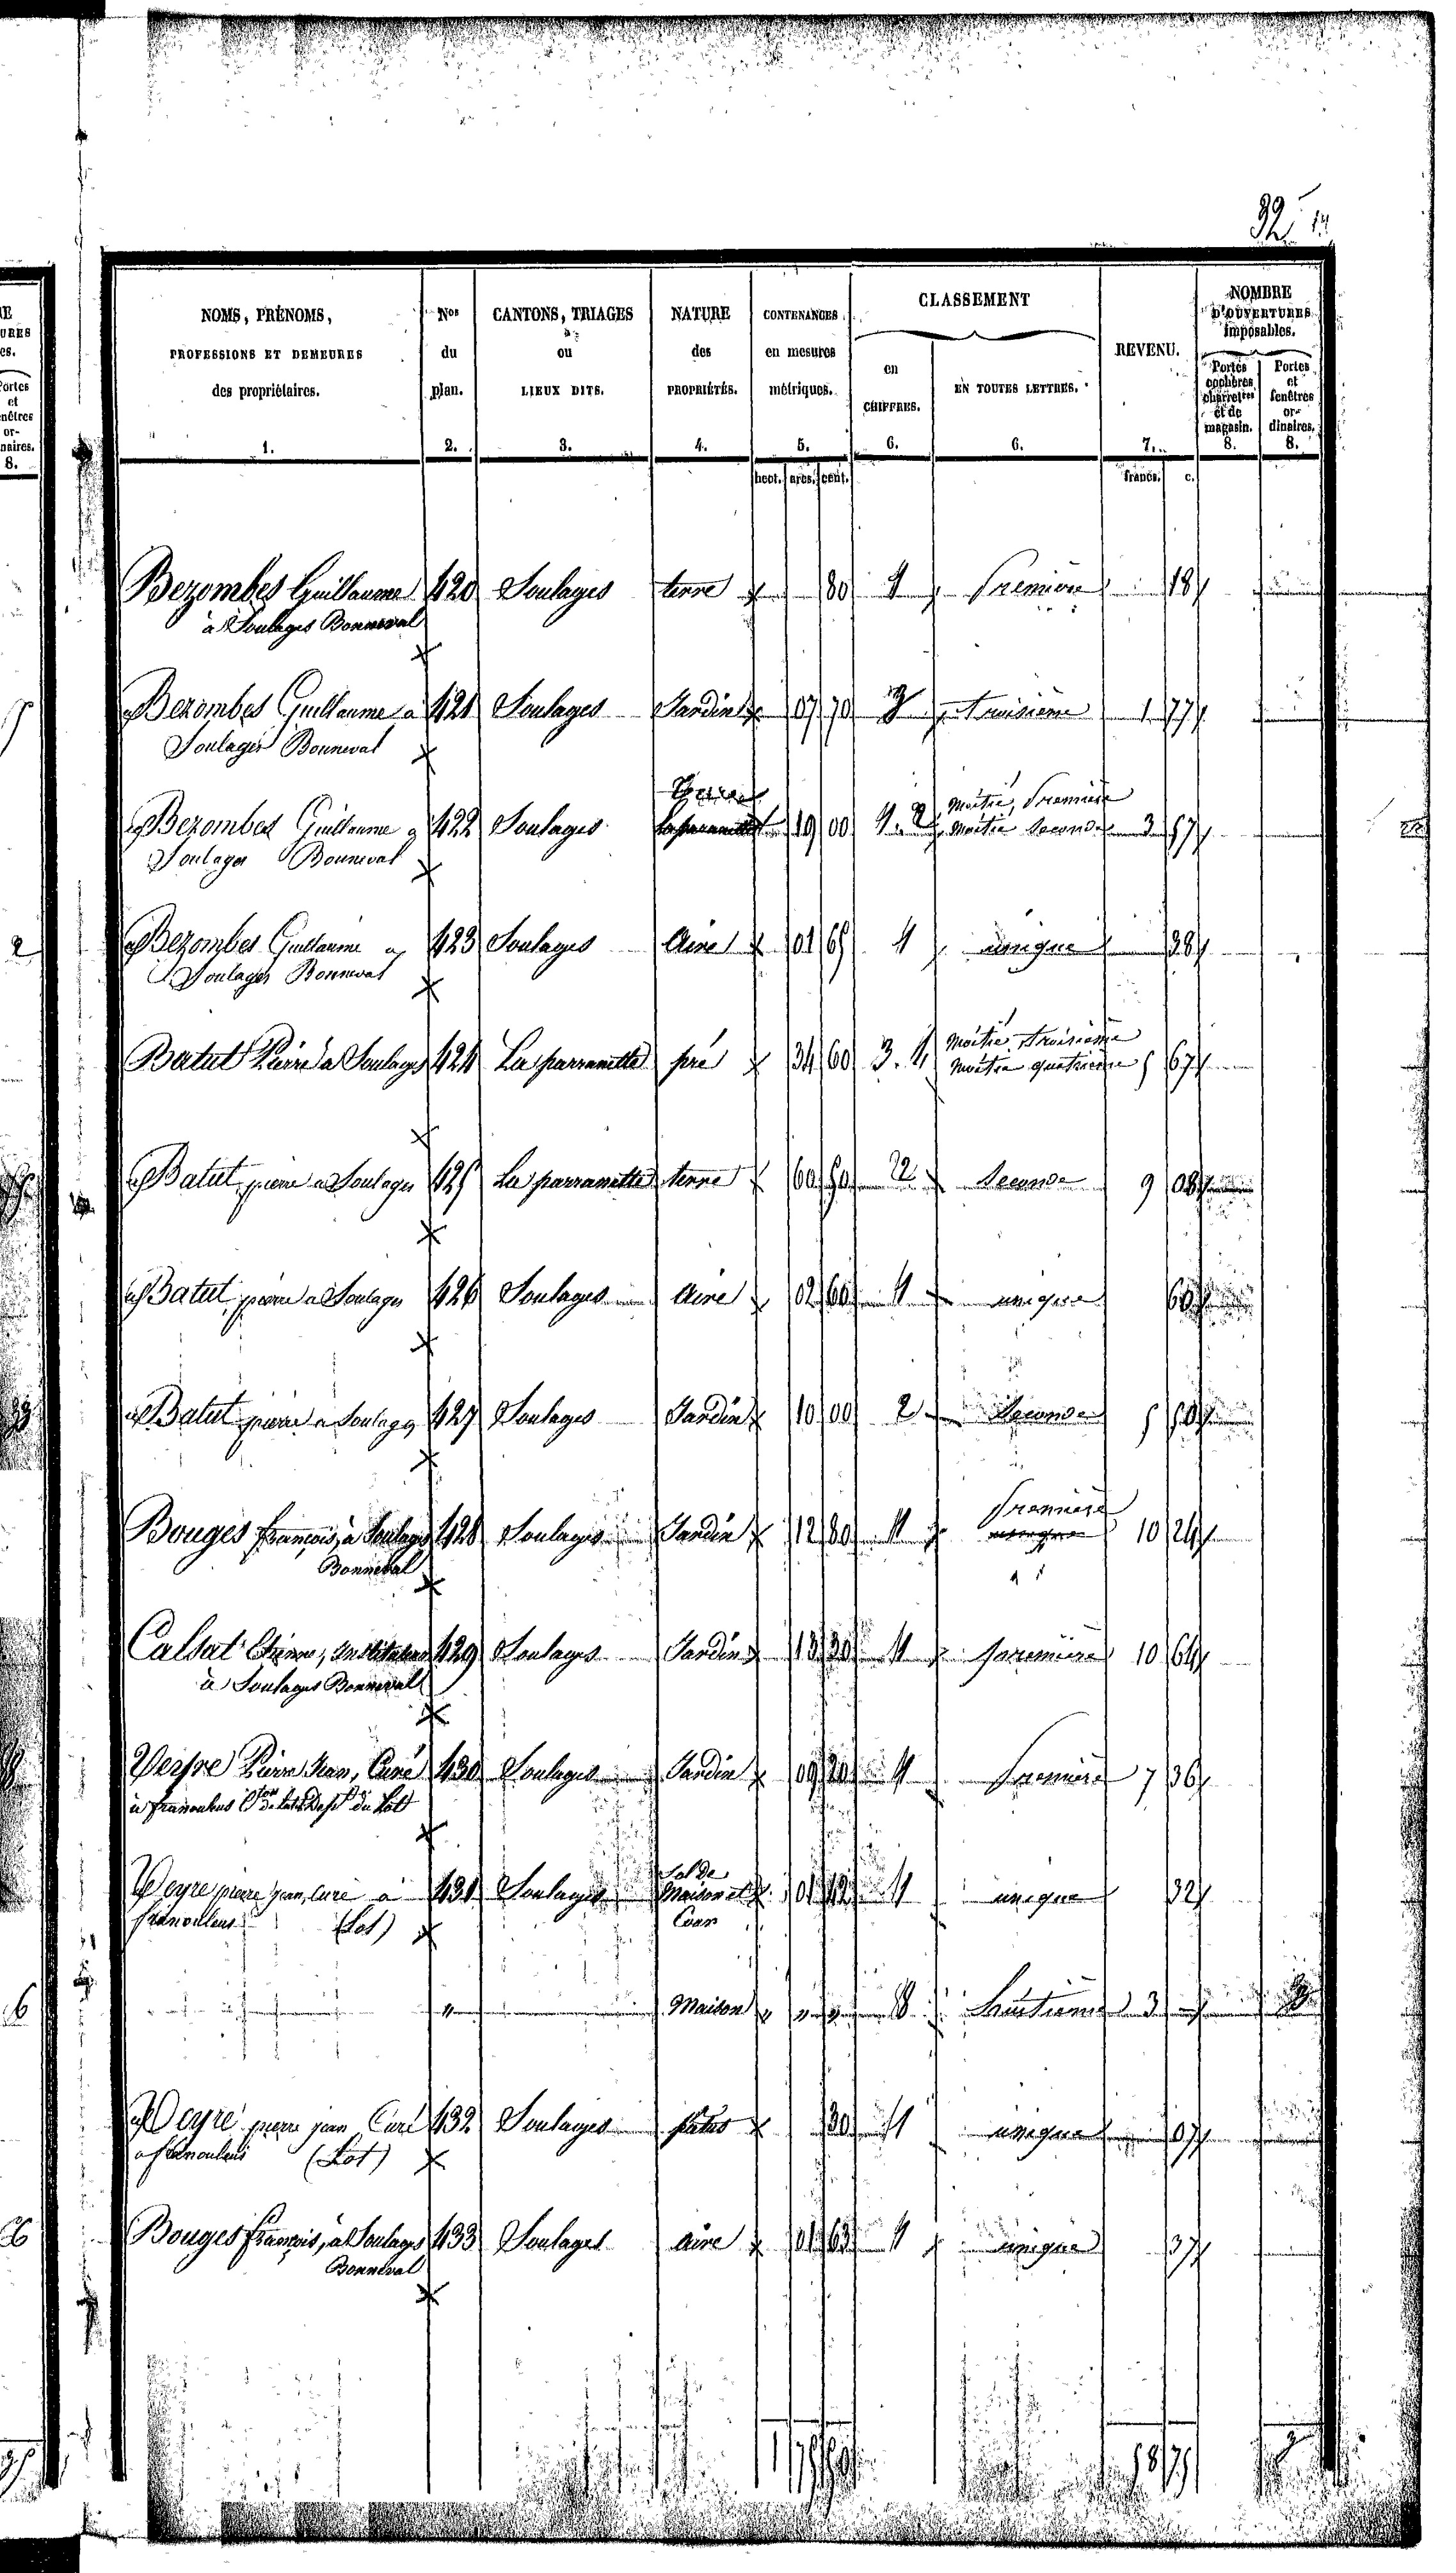 NOMS, PRÉNOMS, PROFESSIONS ET DEMEURES des propriétaires. 1. | Nos du plan. 2. | CANTONS, TRIAGES ou LIEUX DITS. 3. | NATURE des PROPRIÉTÉS. 4. | CONTENANCES en mesures métriques. 5. | CLASSEMENT en CHIFFRES. 6. | EN TOUTES LETTRES. 6. | REVENU. 7. | NOMBRE D'OUVERTURES imposables. Portes cochères charretières et de magasin. 8. | Portes et fenêtres ordinaires. 8.
hect. ares. cent. francs. c.
Bezombes Guillaume 420 Soulages terre 80 1 Première 18
à Soulages Bonneval
Bezombes Guillaume a 421 Soulages Jardin 07 70 3 troisième 1 77
Soulages Bonneval
Bezombes Guillaume a 422 Soulages 19 00 1. 2 Moitié Première Moitié Seconde 3 67
Soulages Bonneval
Bezombes Guillaume a 423 Soulages Aire 01 65 1 unique 38
Soulages Bonneval
Batut Pierre a Soulages 424 La parranette pré 34 60 3. 4 Moitié troisième Moitié quatrième 5 67
Batut pierre a Soulages 425 La parranette terre 60 50 2 Seconde 9 08
Batut pierre a Soulages 426 Soulages Aire 02 60 1 unique 60
Batut pierre a Soulages 427 Soulages Jardin 10 00 2 Seconde 5 50
Bouges françois, à Soulages 428 Soulages Jardin 12 80 1 Première 10 24
Bonneval
Calsat Etienne, Instituteur 429 Soulages Jardin 13 30 1 première 10 64
à Soulages Bonneval
Veyre Pierre Jean, Curé 430 Soulages Jardin 09 20 1 Première 7 36
Veyre pierre jean, curé a 431 Soulages Sol de Maison et Cour 01 42 1 unique 32
(Lot)
Maison 8 huitième 3
Veyre pierre jean Curé 432 Soulages patus 30 1 unique 07
(Lot)
Bouges François, à Soulages 433 Soulages aire 01 63 1 unique 37
Bonneval